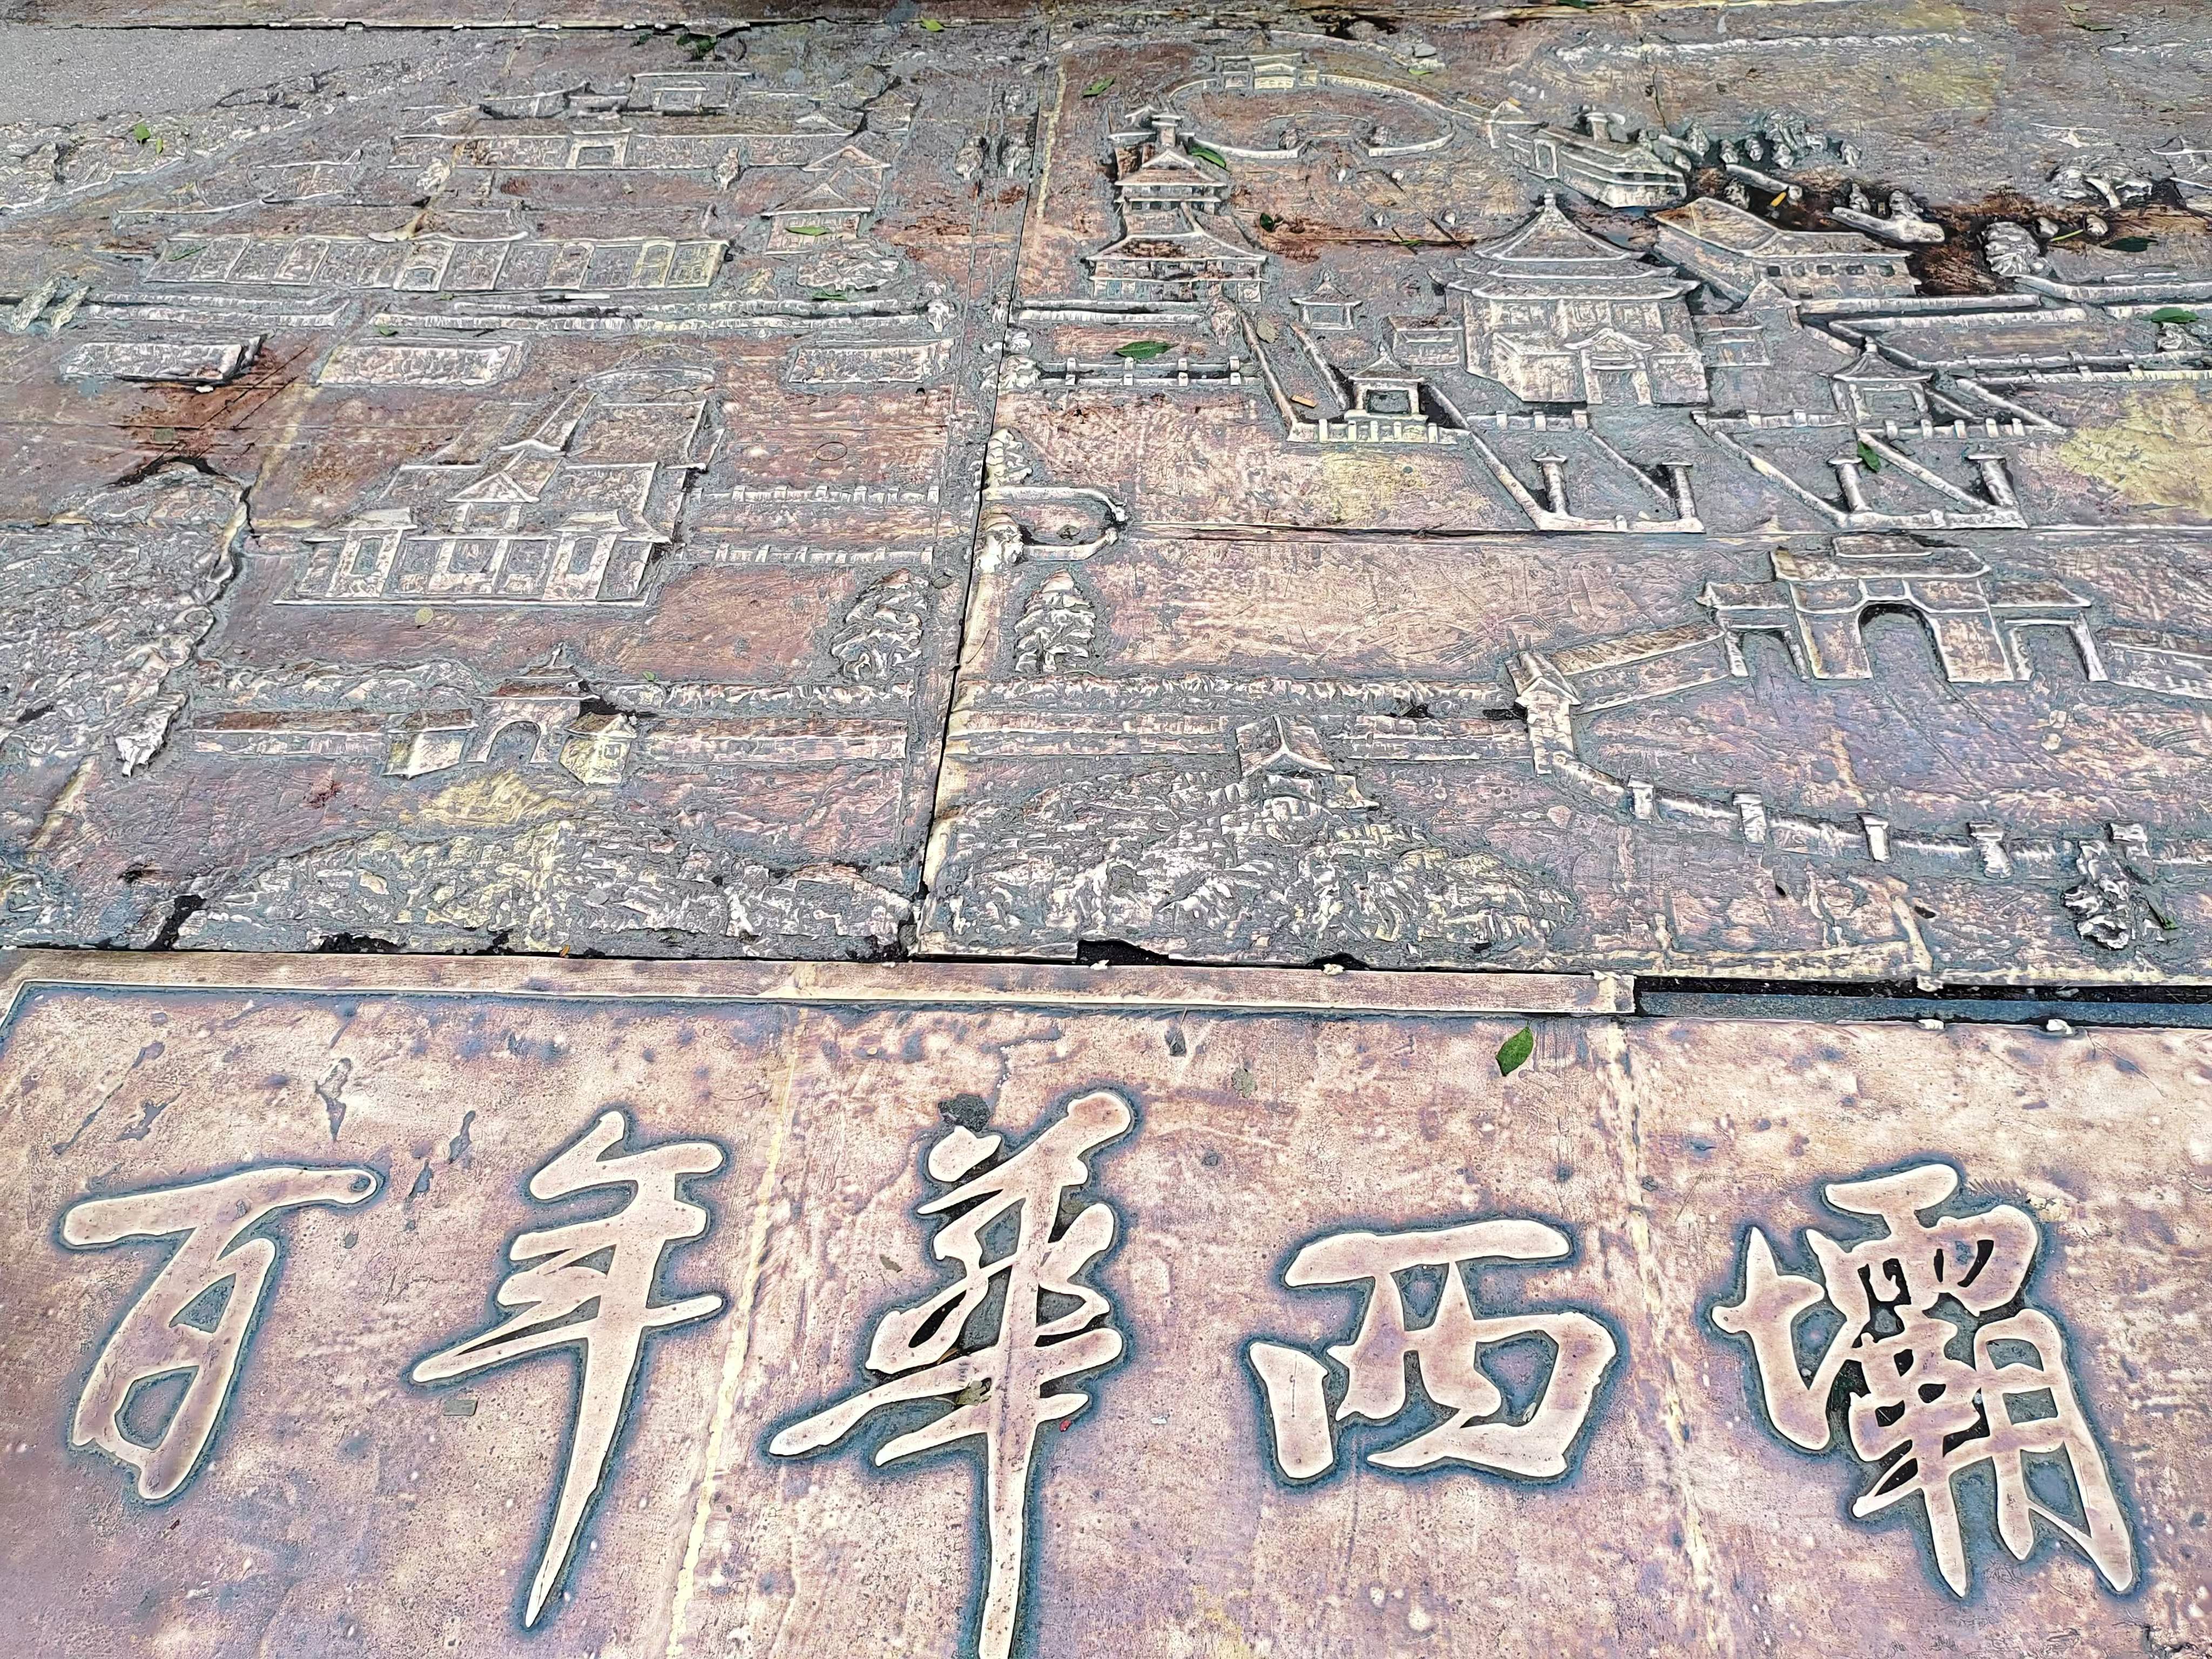 百年華西壩